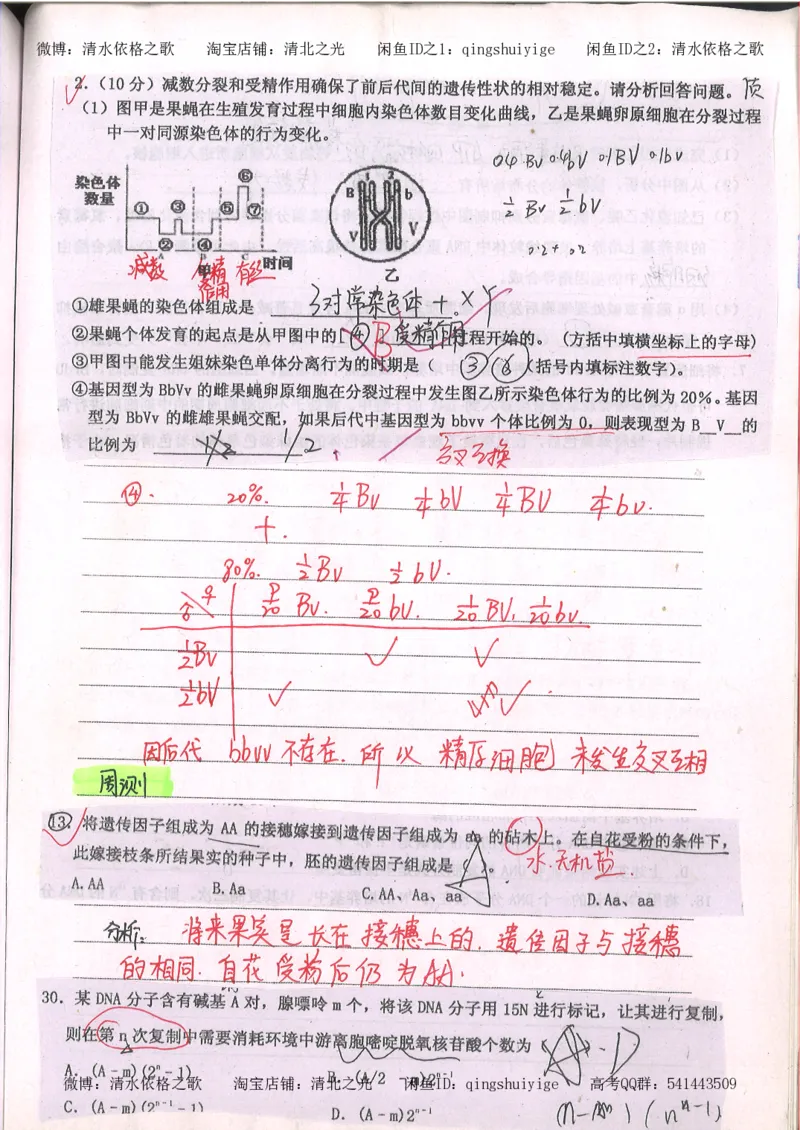 微博：清水依格之歌 淘宝店铺：清北之光 闲鱼ID之1：qingshuiyige 闲鱼ID之2：清水依格之歌
2.（10分）减数分裂和受精作用确保了前后代间的遗传性状的相对稳定。请分析回答问题。
（1）图甲是果蝇在生殖发育过程中细胞内染色体数目变化曲线，乙是果蝇卵原细胞在分裂过程
中一对同源染色体的行为变化。
0.4Bv 0.4bV 0.1BV 0.1bv
1/2 Bv 1/2 bV
0.2+0.2
染色体
数量
① ② ③ ④ ⑤ ⑥ ⑦
A B C 时间
减数 受精作用 有丝
甲
1 2
B b b
V V
乙
①雄果蝇的染色体组成是 3对常染色体+XY
②果蝇个体发育的起点是从甲图中的[ B ]受精作用过程开始的。（方括中填横坐标上的字母）
③甲图中能发生姐妹染色单体分离行为的时期是（ ③⑥ ）（括号内填标注数字）。
④基因型为BbVv的雌果蝇卵原细胞在分裂过程中发生图乙所示染色体行为的比例为20%。基因
型为BbVv的雌雄果蝇交配，如果后代中基因型为bbvv个体比例为0，则表现型为B_V_的
比例为 1/2
交叉互换
④. 20%. 1/4 Bv 1/4 bV 1/4 BV 1/4 bv.
+.
80%. 1/2 Bv 1/2 bV.
♂ ♀ 9/20 Bv. 9/20 bV. 1/20 BV. 1/20 bv.
1/2 Bv ✓ ✓
1/2 bV ✓ ✓
因后代 bbvv 不存在.所以 精原细胞 未发生交叉互相
周测
13. 将遗传因子组成为 AA 的接穗嫁接到遗传因子组成为 aa 的砧木上。在自花受粉的条件下，
此嫁接枝条所结果实的种子中，胚的遗传因子组成是
水.无机盐
A. AA B. Aa C. AA、Aa、aa D. Aa、aa
分析: 将来果实是长在接穗上的.遗传因子与接穗
的相同.自花受粉后仍为AA.
30. 某 DNA 分子含有碱基 A 对，腺嘌呤 m 个，将该 DNA 分子用 15N 进行标记，让其进行复制，
则在第 n 次复制中需要消耗环境中游离胞嘧啶脱氧核苷酸个数为
A. (A-m)(2ⁿ-1) B. (A/2 m)2ⁿ⁻¹
微博：清水依格之歌 淘宝店铺：清北之光 闲鱼ID：qingshuiyige 高考QQ群：541443509
C. (A-m)(2ⁿ⁻¹-1) D. (A-m)2ⁿ⁻¹